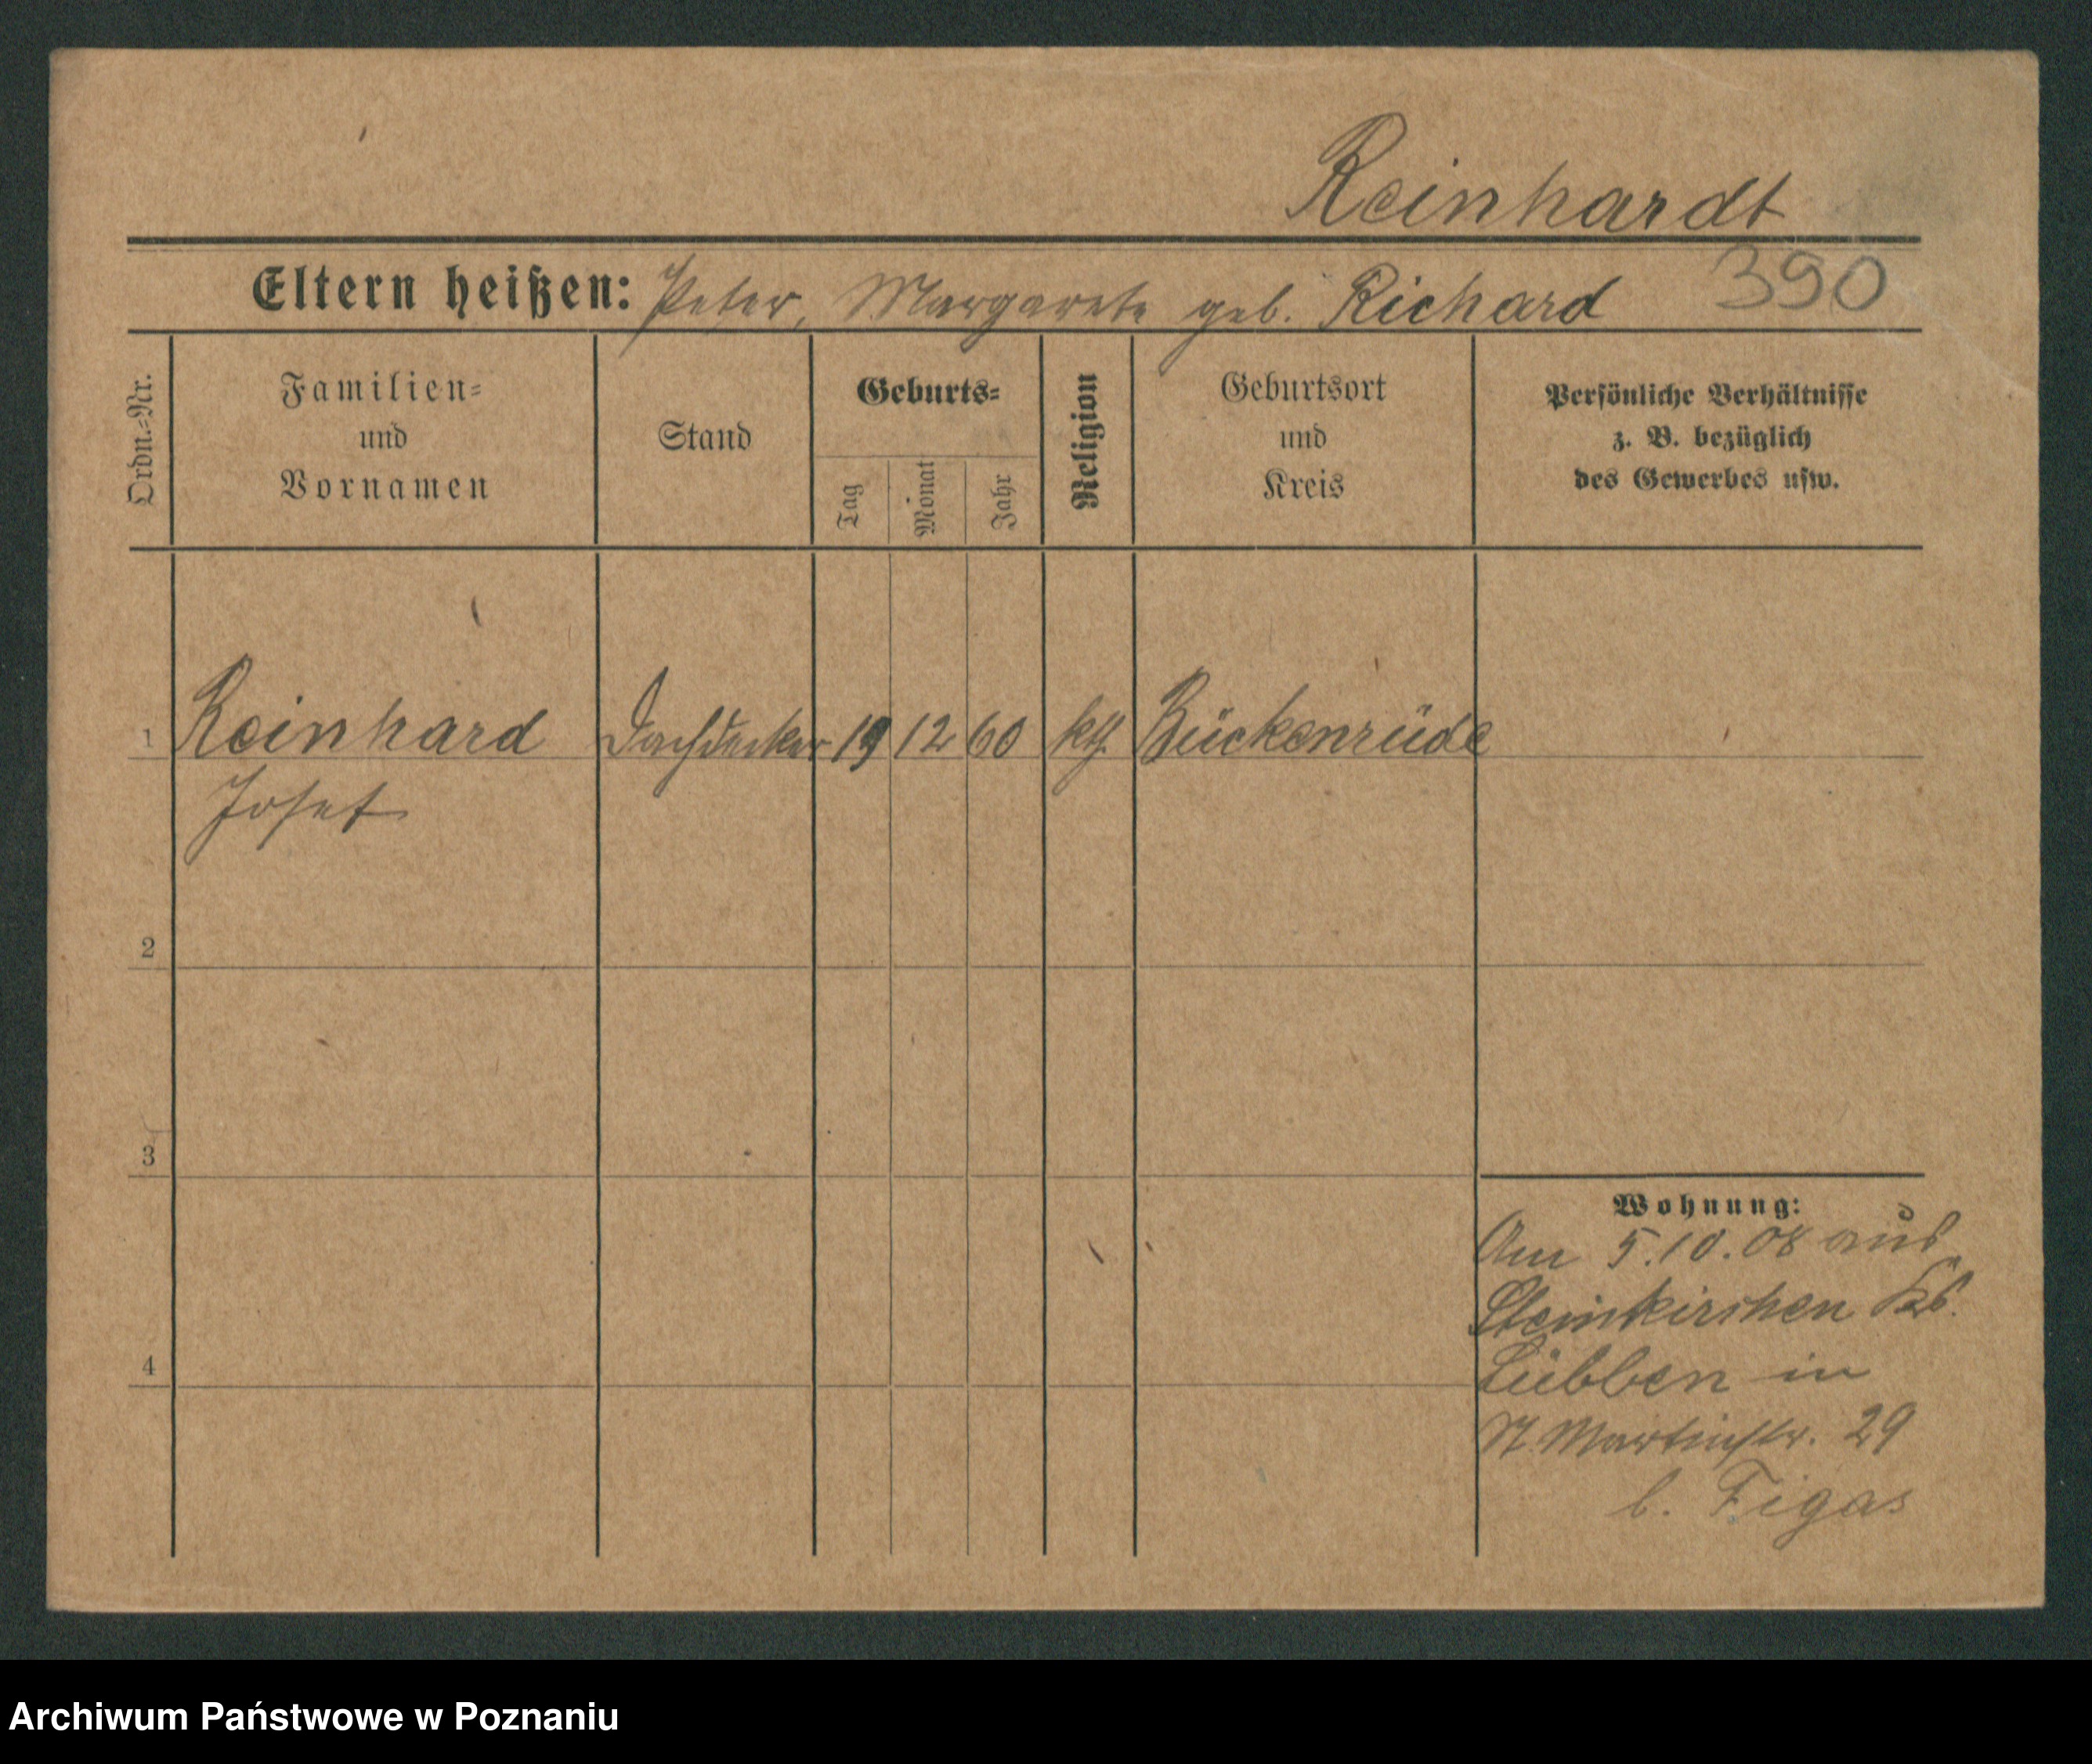 Reinhardt
Eltern heißen: Peter, Margarete geb. Richard 390
Ordn.-Nr.
Familien-
und
Vornamen
Stand
Geburts-
Tag
Monat
Jahr
Religion
Geburtsort
und
Kreis
Persönliche Verhältnisse
z. B. bezüglich
des Gewerbes usw.
1 Reinhard Dachdecker 19 12 60 kth. Bückenrüde
Josef
2
3
4
Wohnung:
Am 5.10.08 aus
Steinkirchen
Lübben in
St. Martinstr. 29
b. Figas
Archiwum Państwowe w Poznaniu